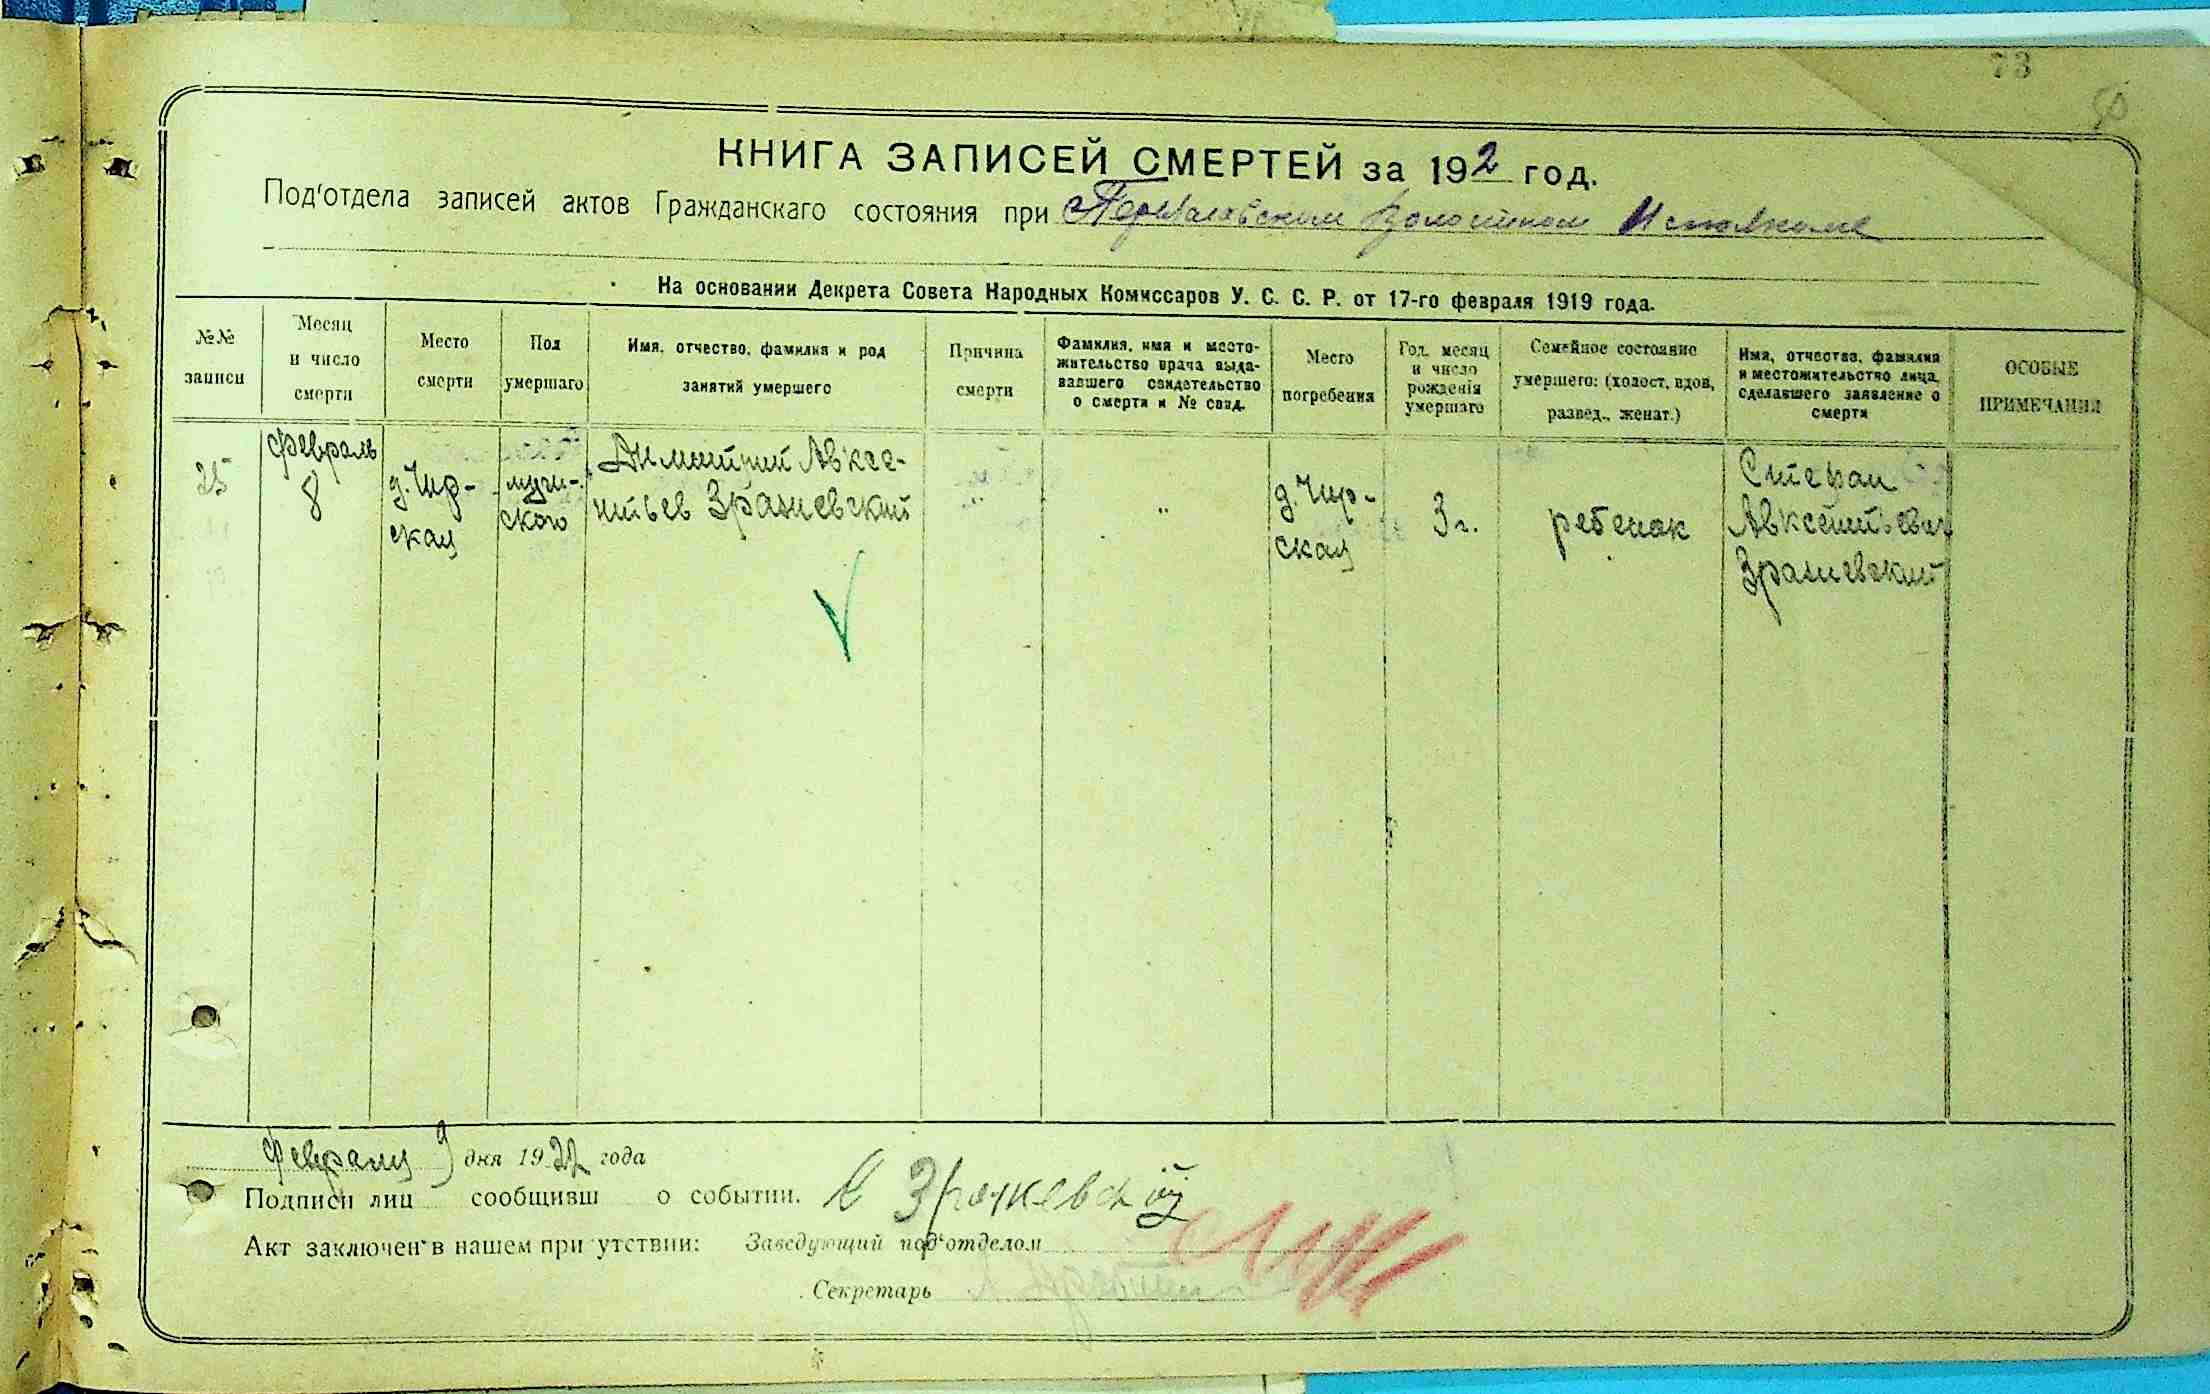 73
КНИГА ЗАПИСЕЙ СМЕРТЕЙ за 192 год.
Под'отдела записей актов Гражданскаго состояния при Волостном Исполкоме
На основании Декрета Совета Народных Комиссаров У. С. С. Р. от 17-го февраля 1919 года.
№№ записи
Месяц и число смерти
Место смерти
Пол умершаго
Имя, отчество, фамилия и род занятий умершего
Причина смерти
Фамилия, имя и место-жительство врача выда-вавшего свидетельство о смерти и № свид.
Место погребения
Год, месяц и число рождения умершаго
Семейное состояние умершего: (холост, вдов, развед., женат.)
Имя, отчества, фамилия и местожительство лица, сделавшего заявление о смерти
ОСОБЫЕ ПРИМЕЧАНИЯ
25
Февраль
8
д. Чир-
ская
мужи-
ского
Димитрий Авксе-
нтьев Зражевский
"
"
д. Чир-
ская
3 г.
ребенок
Стефан
Авксентьевич
Зражевский
Февраля 9 дня 1922 года
Подписи лиц сообщивш о событии. С Зражевский
Акт заключен в нашем присутствии: Заведующий под'отделом
Секретарь